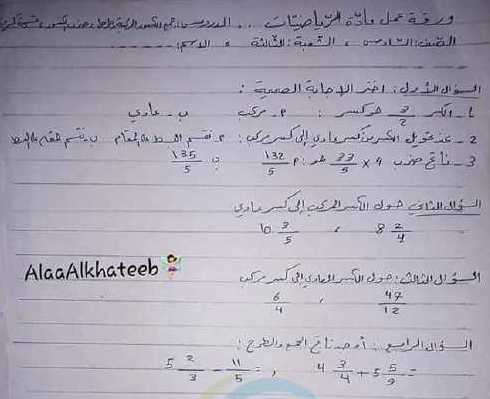 ورقة عمل مادّة الرّياضيّات .. الدروس: جمع الكسور وطرحها، ضرب الكسور، قسمة الكسور
الصف: السّادس ، الشعبة: الثّالثة ، الاسم:
السؤال الأول: اختر الإجابة الصحيحة :
1- الكسر 3/2 هو كسر : م- مركب ب- عادي
2- عند تحويل الكسر من كسر عادي إلى كسر مركب: م- نقسم البسط على المقام ب- نقسم المقام على البسط
3- ناتج ضرب 4 × 33/5 هو: م 132/5 ب 135/5
السؤال الثاني حول الكسر المركب إلى كسر عادي
8 2/4 ، 10 3/5
AlaaAlkhateeb
السؤال الثالث: حول الكسر العادي إلى كسر مركب
47/12 ، 6/4
السؤال الرابع: أوجد ناتج الجمع والطرح :
4 3/4 + 5 5/9 = ، 5 2/3 - 11/5 =